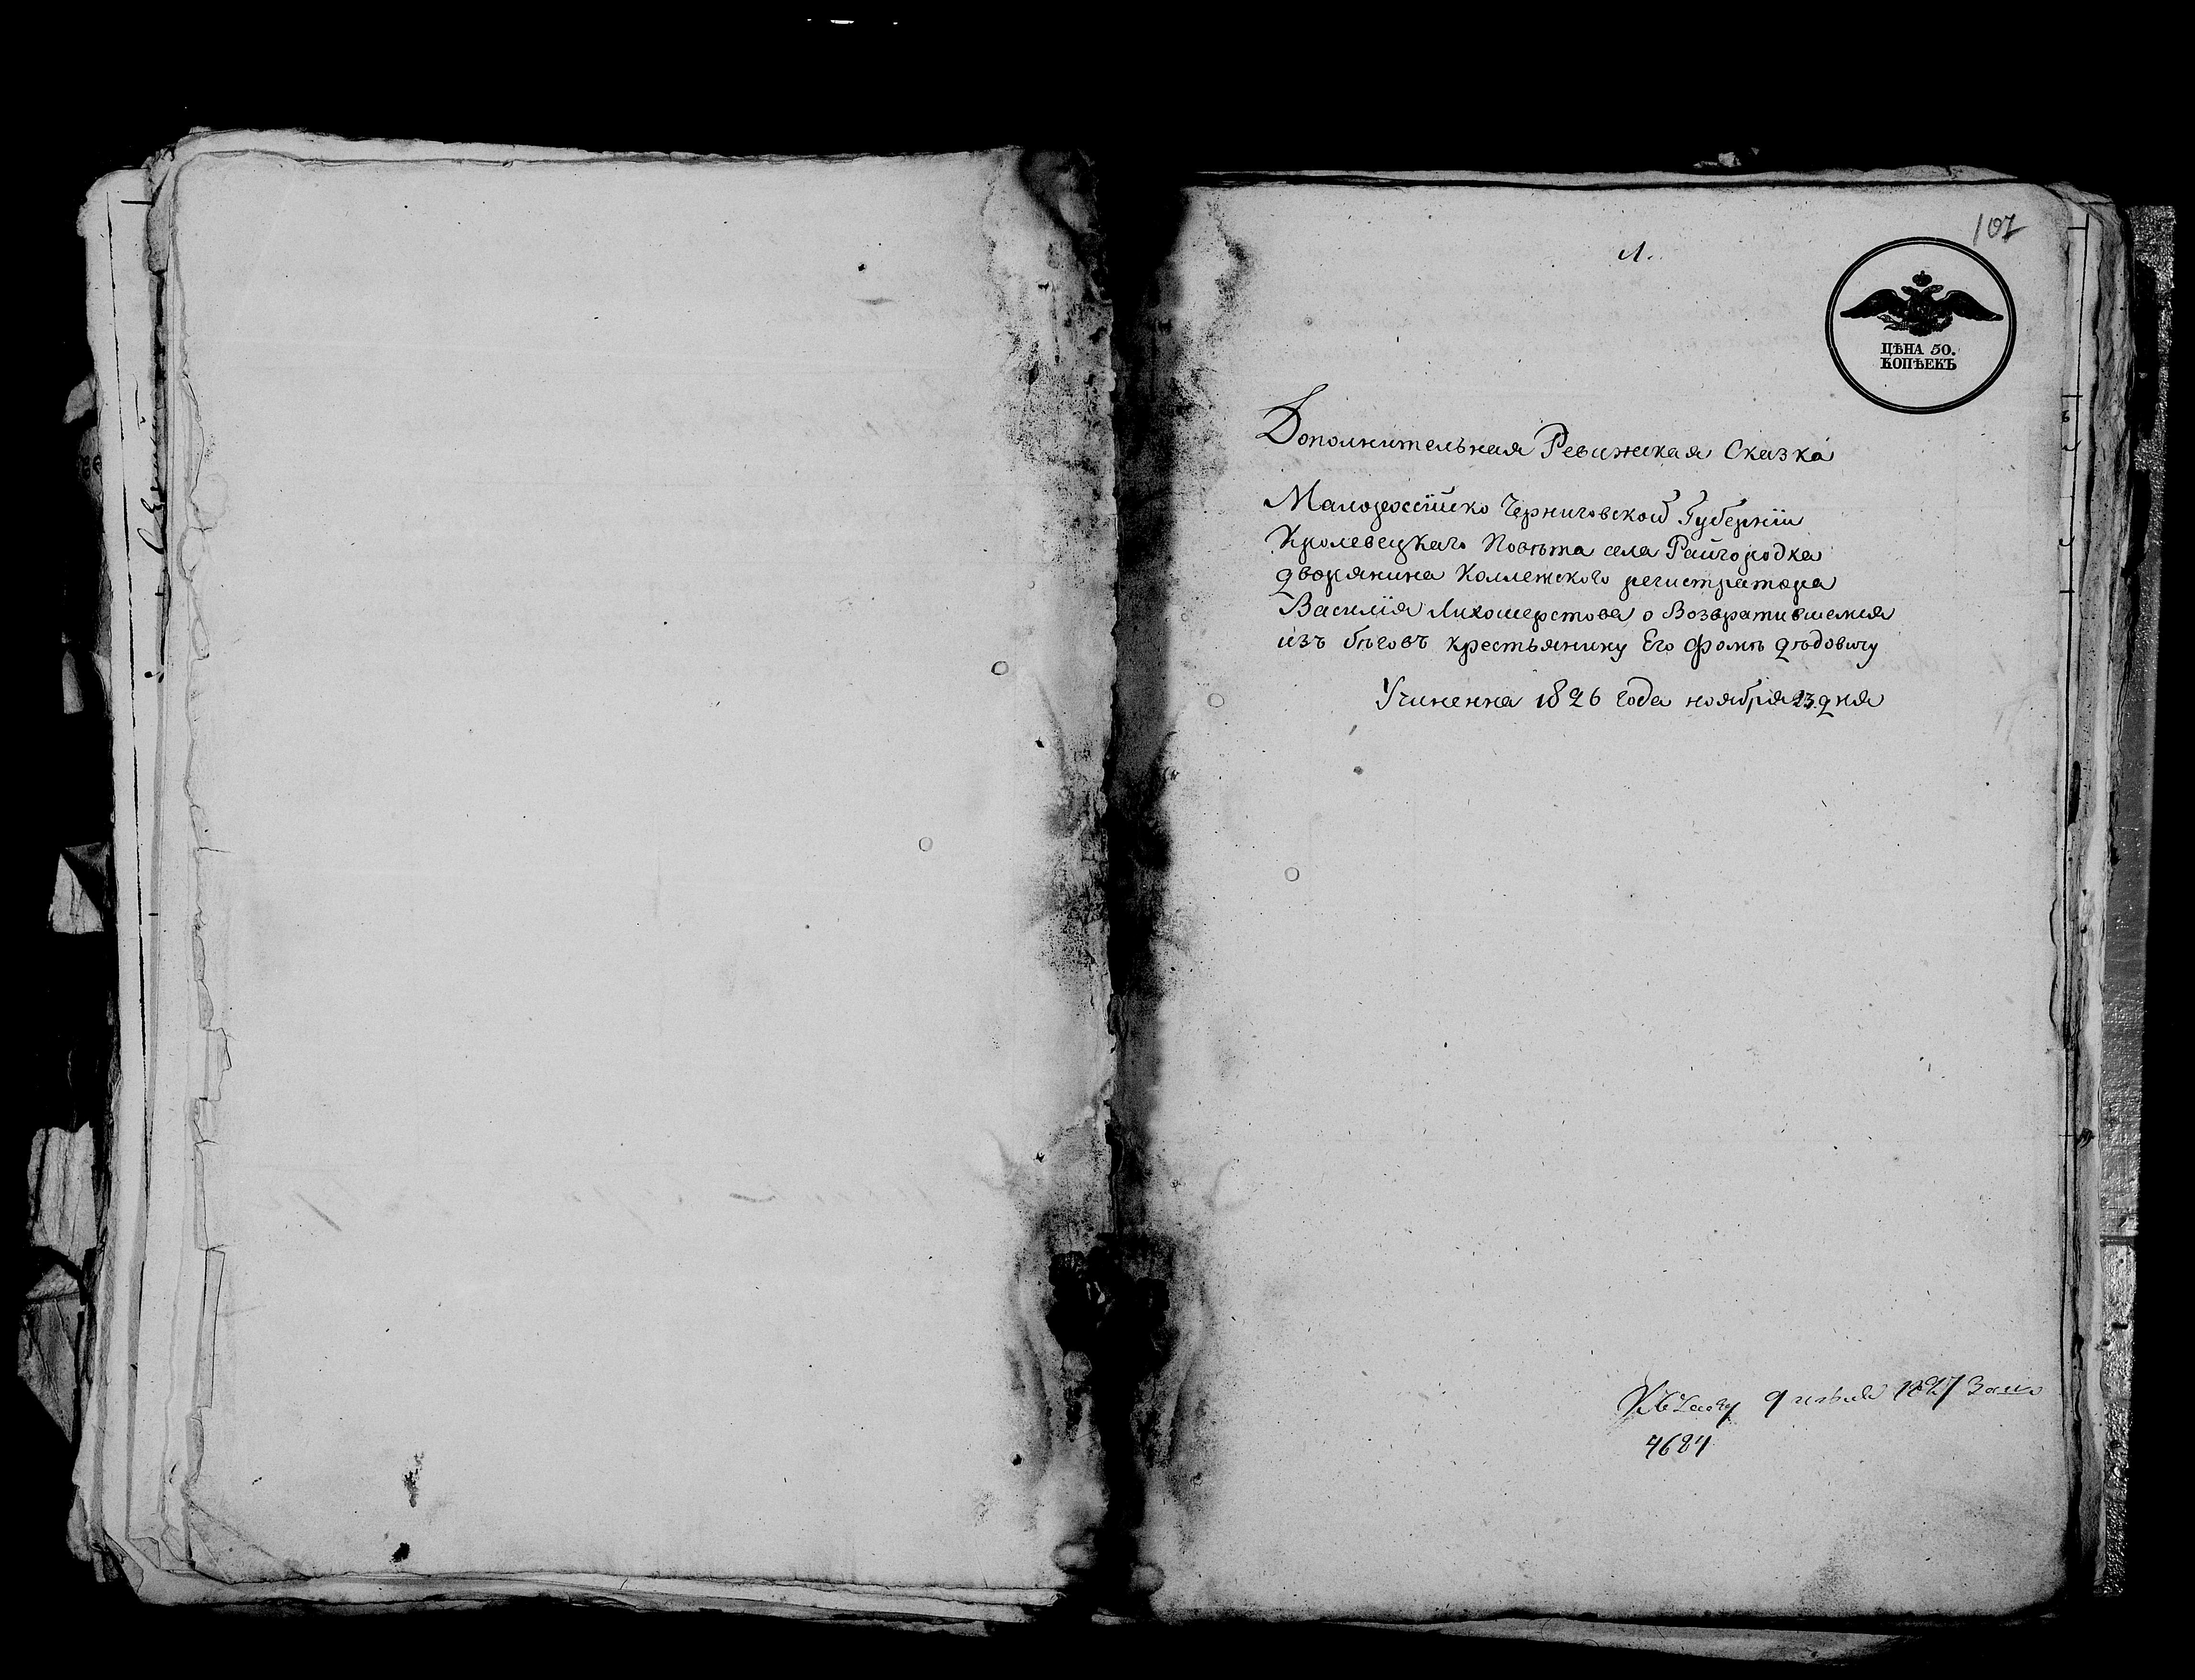 107
ЦѢНА 50.
КОПѢЕКЪ
Дополнительная Ревижская Сказка
Малороссійско Черниговской Губерніи
Кролевецкаго Повѣта села Райгородка
дворянина Коллежского регистратора
Василія Лихошерстова о Возвратившемся
изъ бѣговъ крестьянину Его Фомѣ Дѣдовичу
Учиненна 1826 года ноября 23 дня
9 1827
4684